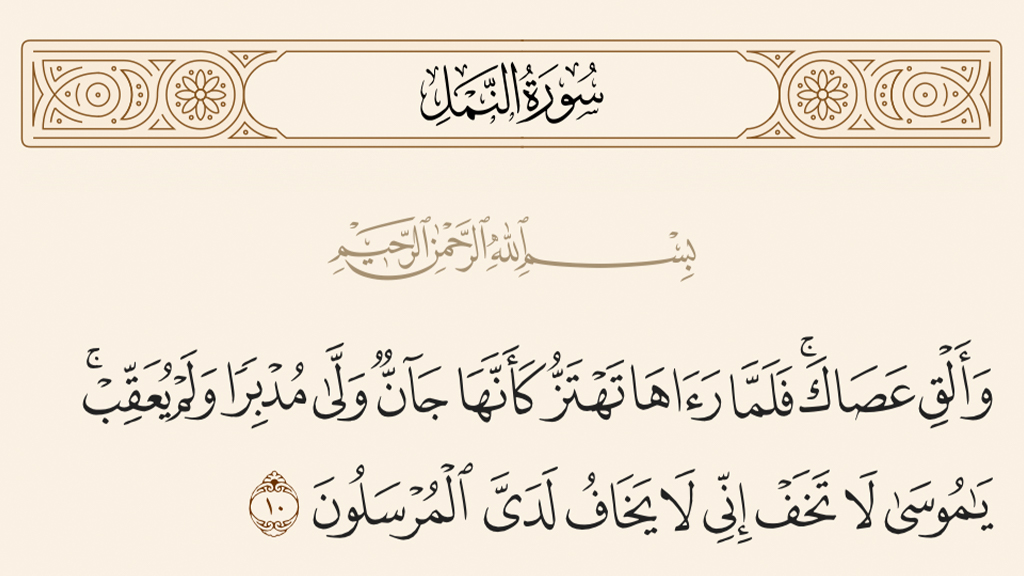 سُورَةُ النَّمۡلِ
بِسۡمِ ٱللَّهِ ٱلرَّحۡمَٰنِ ٱلرَّحِيمِ
وَأَلۡقِ عَصَاكَۚ فَلَمَّا رَءَاهَا تَهۡتَزُّ كَأَنَّهَا جَآنّٞ وَلَّىٰ مُدۡبِرٗا وَلَمۡ يُعَقِّبۡۚ
يَٰمُوسَىٰ لَا تَخَفۡ إِنِّي لَا يَخَافُ لَدَيَّ ٱلۡمُرۡسَلُونَ ١٠